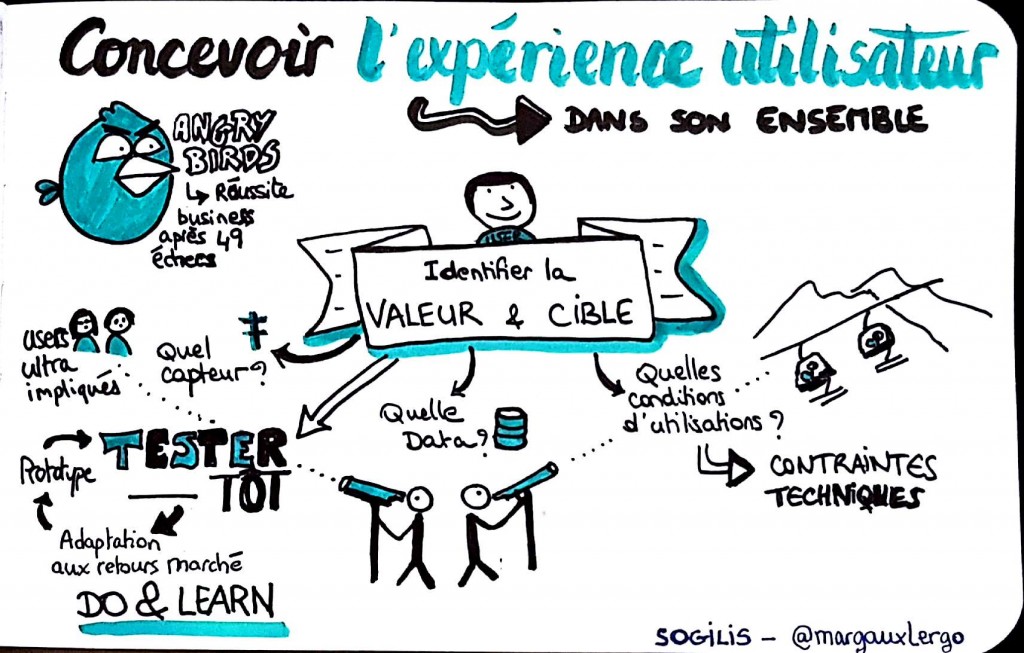 Concevoir l'expérience utilisateur
DANS SON ENSEMBLE
ANGRY
BIRDS
Réussite
business
après 49
échecs
USER
Identifier la
VALEUR & CIBLE
Users
ultra
impliqués
Quel
capteur ?
Quelle
Data ?
Quelles
conditions
d'utilisations ?
CONTRAINTES
TECHNIQUES
TESTER
TÔT
Prototype
Adaptation
aux retours marché
DO & LEARN
SOGILIS - @margauxlergo